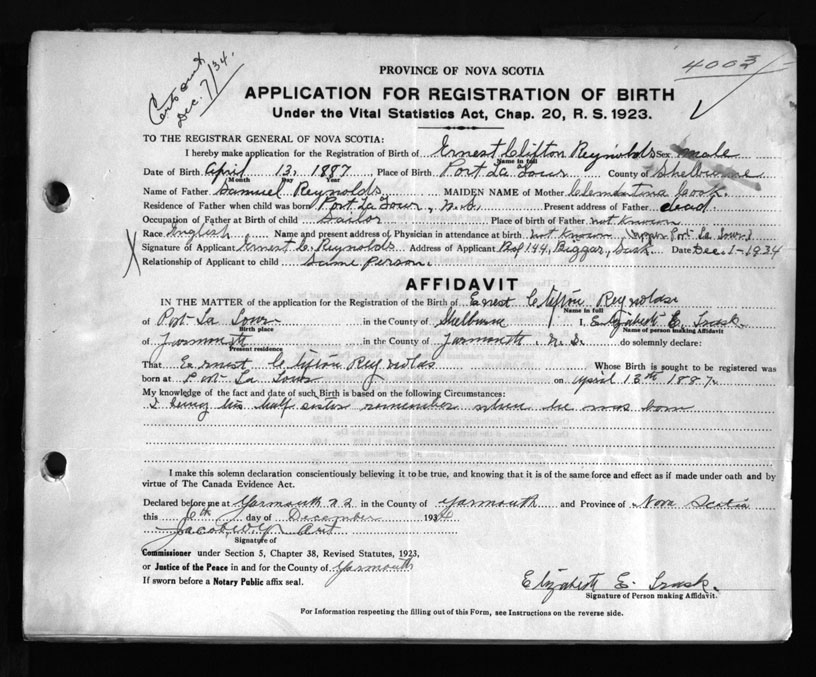 4003
Dec. 7/34.
PROVINCE OF NOVA SCOTIA
APPLICATION FOR REGISTRATION OF BIRTH
Under the Vital Statistics Act, Chap. 20, R. S. 1923.
TO THE REGISTRAR GENERAL OF NOVA SCOTIA:
I hereby make application for the Registration of Birth of Ernest Clifton Reynolds Sex male
Name in full
Date of Birth April 13, 1887 Place of Birth Port La Tour County of Shelburne
Month Day Year
Name of Father Samuel Reynolds MAIDEN NAME of Mother Clementina Cook.
Residence of Father when child was born Port La Tour, N.S. Present address of Father dead
Occupation of Father at Birth of child Sailor Place of birth of Father not known
Race English Name and present address of Physician in attendance at birth not known (Upper Port La Tour)
Signature of Applicant Ernest C. Reynolds Address of Applicant Box 144, Biggar, Sask. Date Dec. 1-1934
Relationship of Applicant to child Same person.
AFFIDAVIT
IN THE MATTER of the application for the Registration of the Birth of Ernest Clifton Reynolds
Name in full
of Port La Tour in the County of Shelburne I, Elizabeth E. Trask
Birth place Name of person making Affidavit
of Yarmouth in the County of Yarmouth, N.S. do solemnly declare:
Present residence
That Ernest Clifton Reynolds Whose Birth is sought to be registered was
born at Port La Tour on April 13th 1887.
My knowledge of the fact and date of such Birth is based on the following Circumstances:
I being his half sister remember when he was born
I make this solemn declaration conscientiously believing it to be true, and knowing that it is of the same force and effect as if made under oath and by
virtue of The Canada Evidence Act.
Declared before me at Yarmouth N S in the County of Yarmouth and Province of Nova Scotia
this 6th day of December 1934
Signature of
Commissioner under Section 5, Chapter 38, Revised Statutes, 1923,
or Justice of the Peace in and for the County of Yarmouth
If sworn before a Notary Public affix seal.
Elizabeth E. Trask.
Signature of Person making Affidavit.
For Information respecting the filling out of this Form, see Instructions on the reverse side.